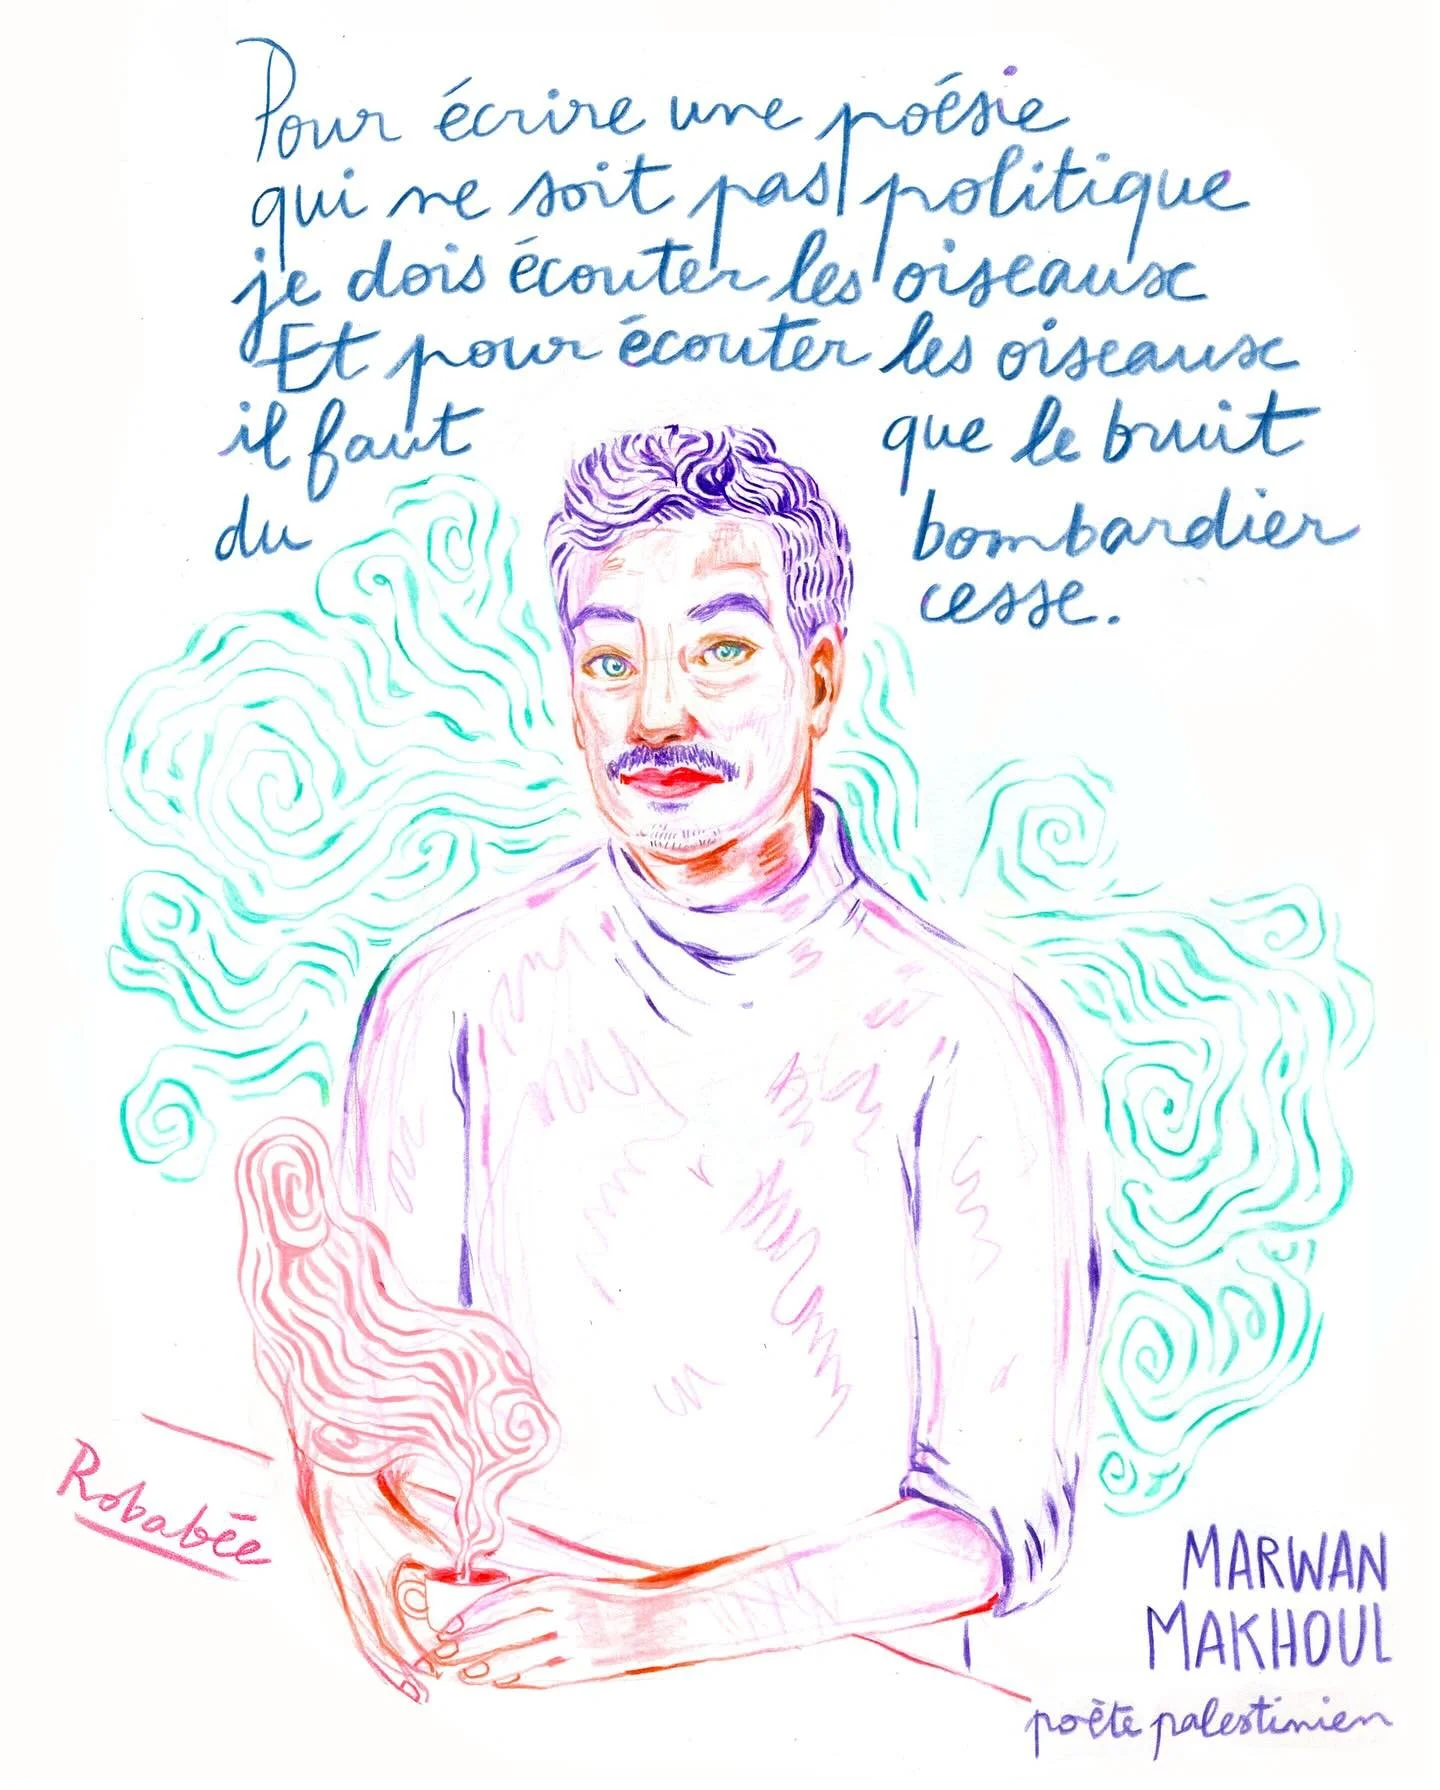 Pour écrire une poésie
qui ne soit pas politique
je dois écouter les oiseaux
Et pour écouter les oiseaux
il faut que le bruit
du bombardier
cesse.
Robabée
MARWAN
MAKHOUL
poète palestinien